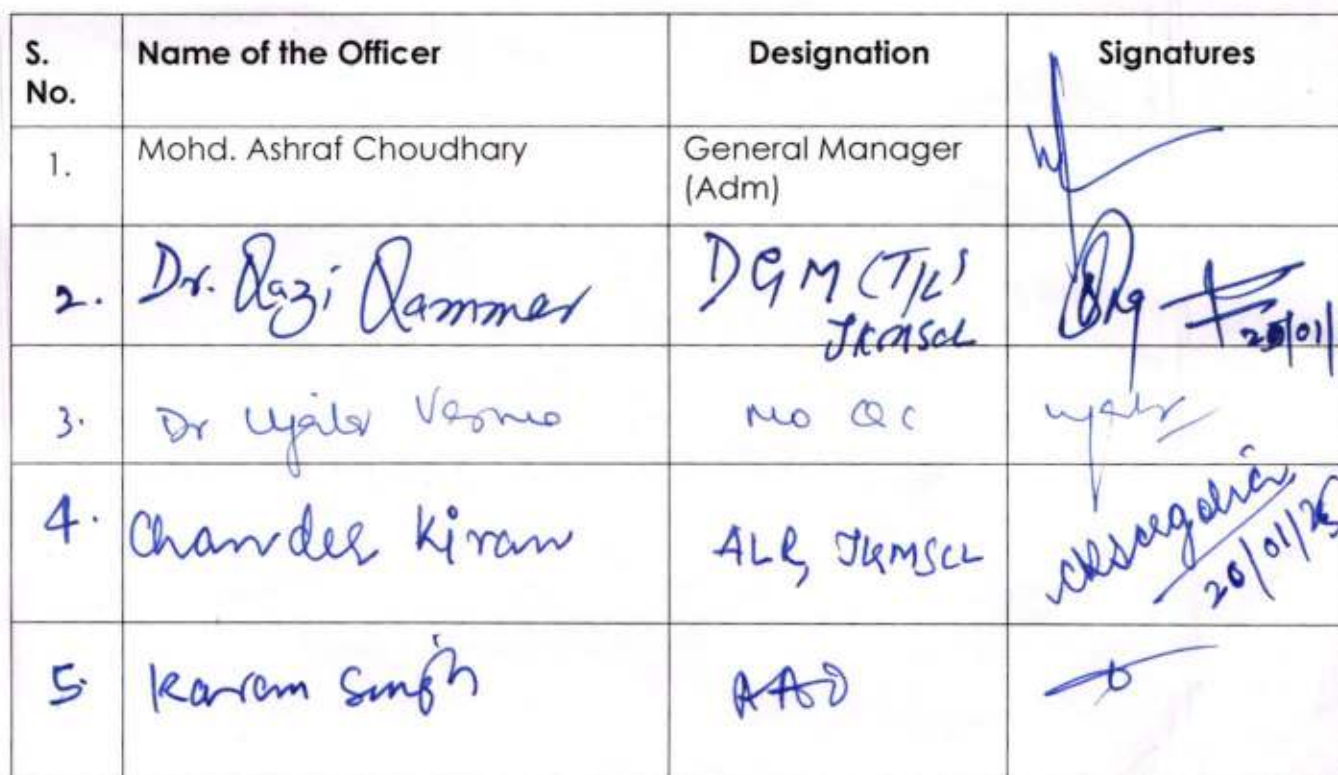 S. No. Name of the Officer Designation Signatures
1. Mohd. Ashraf Choudhary General Manager (Adm)
2. Dr. Qazi Qammer DGM (T/L) JKMSCL
3. Dr Ujala Verma MO QC
4. Chander Kiran ALR, JKMSCL 20/01/25
5. Karam Singh AAO